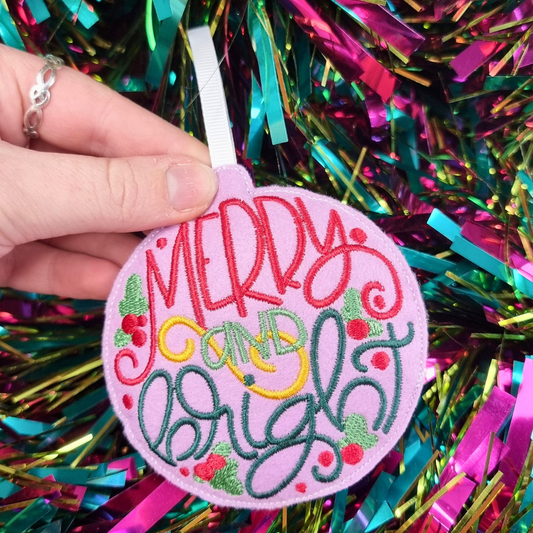 MERRY
AND
bright